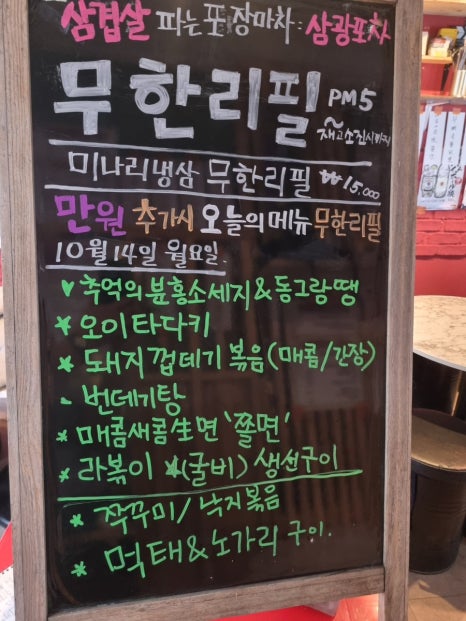 삼겹살 파는 포장마차: 삼광포차
무한리필 PM5
~재고소진시까지
미나리냉삼 무한리필 ₩15,000
만원 추가시 오늘의메뉴 무한리필
10월 14일 월요일.
♥추억의 분홍소세지&동그랑땡
* 오이타다키
* 돼지껍데기볶음(매콤/간장)
- 번데기탕
* 매콤새콤생면'쫄면'
* 라볶이 *(굴비) 생선구이
* 쭈꾸미/낙지볶음
* 먹태&노가리구이.